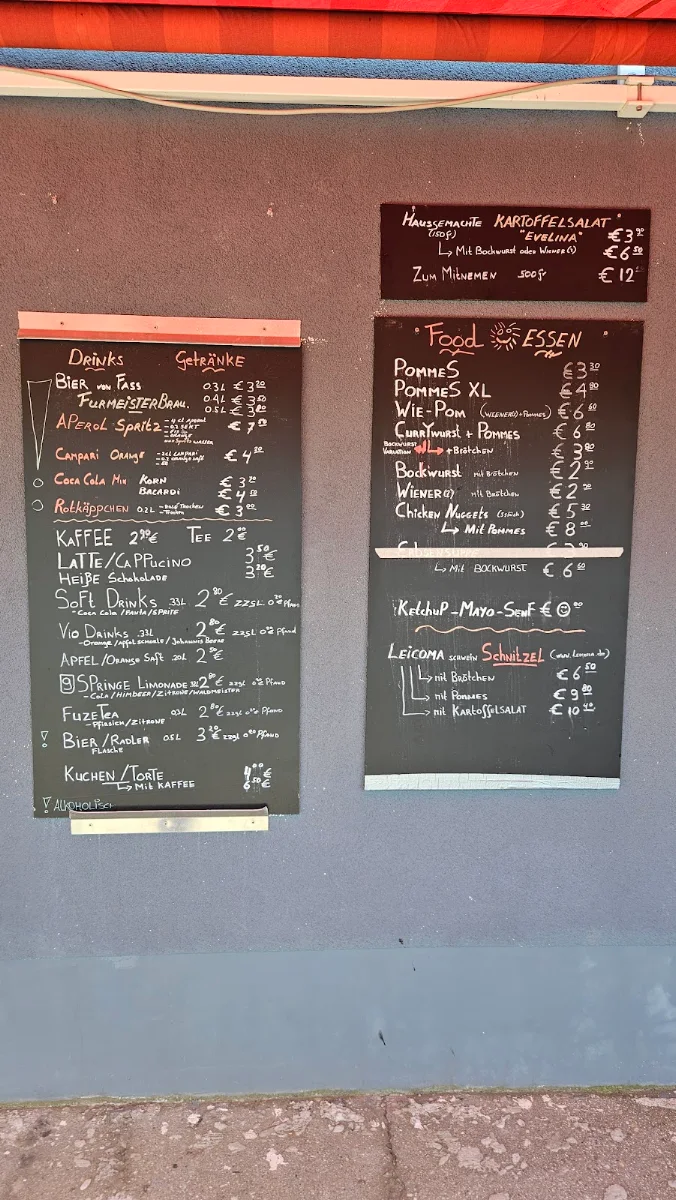 Haussgemachte KARTOFFELSALAT
(150g) "EVELINA" €3 90
Mit Bockwurst oder Wiener(1) €6 50
ZUM MITNEHMEN 500gr €12
DRINKS GETRÄNKE
BIER VOM FASS 0.3L €3 20
FURMEISTERBRÄU. 0.4L €3 50
0.5L €3 80
APEROL SPRITZ €7
CAMPARI ORANGE €4
COCA COLA MIX KORN €3
BACARDI €4
ROTKÄPPCHEN 0.2L €3
KAFFEE 2 90€ TEE 2 €
LATTE/CAPPUCINO 3 50
HEIßE Schokolade 3 20€
SOFT DRINKS .33L 2 80€ zzgl. Pfand
- COCA COLA/FANTA/SPRITE
VIO DRINKS .33L 2 80€ zzgl Pfand
- Orange/Apfelschorle/Johannis Beere
APFEL/ORANGE SAFT .20L 2 €
SPRINGE LIMONADE 2 € zzgl Pfand
- COLA/HIMBEER/ZITRONE/WALDMEISTER
FUZETEA 2 80€ zzgl Pfand
- PFIRSICH/ZITRONE
BIER/RADLER 0.5L 3 20€ zzgl Pfand
FLASCHE
KUCHEN/TORTE 4 00€
MIT KAFFEE 6 50€
! ALKOHOLISCH
Food ESSEN
POMMES €3 30
POMMES XL €4 80
WIE-POM (WIENER(1)+POMMES) €6 60
CURRYWURST + POMMES €6
BOCKWURST VARIATION + BRÖTCHEN €3
BOCKWURST mit Brötchen €2
WIENER(2) mit Brötchen €2
CHICKEN NUGGETS €5
MIT POMMES €8
MIT BOCKWURST €6 50
KETCHUP - MAYO - SENF €
LEICOMA SCHWEIN SCHNITZEL
mit Brötchen €6 50
mit POMMES €9 80
mit KARTOFFELSALAT €10